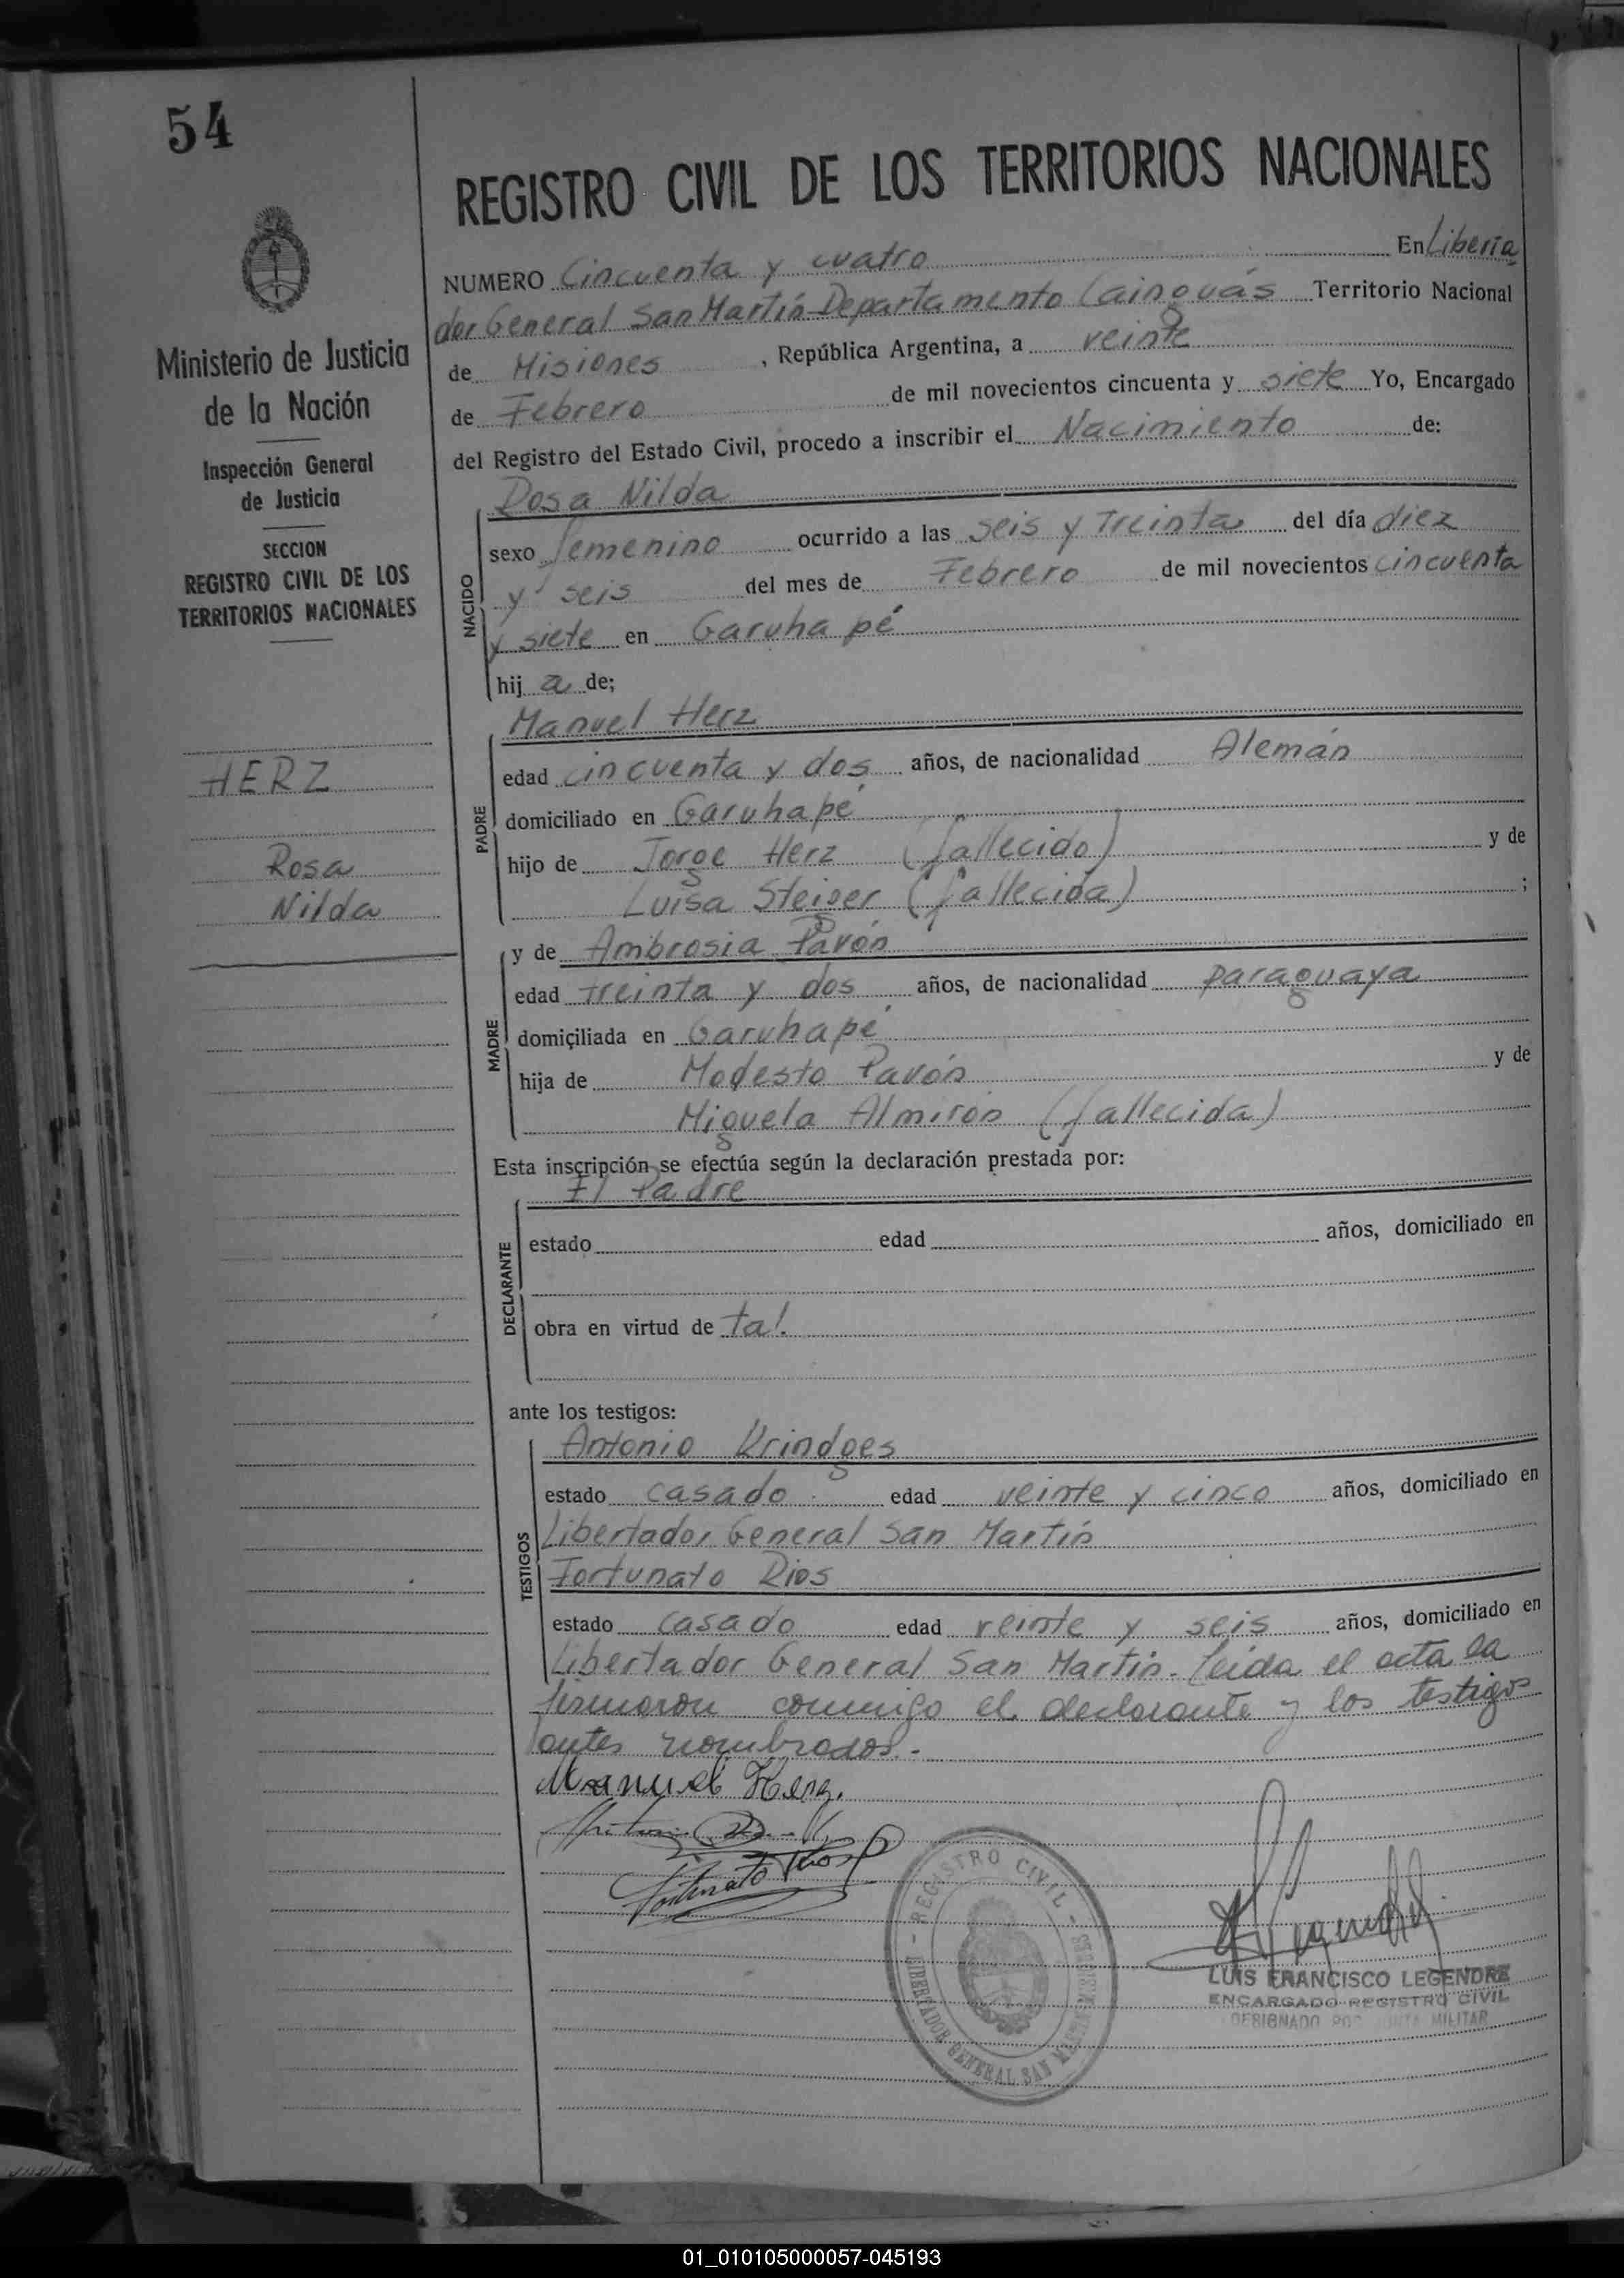 54
REGISTRO CIVIL DE LOS TERRITORIOS NACIONALES
NUMERO Cincuenta y cuatro En Liberta
dor General San Martín - Departamento Cainguás Territorio Nacional
de Misiones, República Argentina, a veinte
de Febrero de mil novecientos cincuenta y siete Yo, Encargado
del Registro del Estado Civil, procedo a inscribir el Nacimiento de:
Ministerio de Justicia
de la Nación
Inspección General
de Justicia
SECCION
REGISTRO CIVIL DE LOS
TERRITORIOS NACIONALES
HERZ
Rosa
Nilda
NACIDO
Rosa Nilda
sexo femenino ocurrido a las seis y treinta del día diez
y seis del mes de Febrero de mil novecientos cincuenta
y siete en Garuhapé
hij a de;
PADRE
Manuel Herz
edad cincuenta y dos años, de nacionalidad Alemán
domiciliado en Garuhapé
hijo de Jorge Herz (fallecido) y de
Luisa Steiger (fallecida) ;
MADRE
y de Ambrosia Pavón
edad treinta y dos años, de nacionalidad paraguaya
domiciliada en Garuhapé
hija de Modesto Pavón y de
Miguela Almirón (fallecida)
Esta inscripción se efectúa según la declaración prestada por:
DECLARANTE
El Padre
estado edad años, domiciliado en
obra en virtud de tal.
ante los testigos:
TESTIGOS
Antonio Krindges
estado casado edad veinte y cinco años, domiciliado en
Libertador General San Martín
Fortunato Rios
estado casado edad veinte y seis años, domiciliado en
Libertador General San Martín. Leída el acta la
firmaron conmigo el declarante y los testigos
antes nombrados.-
Manuel Herz.
Fortunato Rios
REGISTRO CIVIL
LIBERTADOR GENERAL SAN MARTIN
LUIS FRANCISCO LEGENDRE
ENCARGADO REGISTRO CIVIL
DESIGNADO POR JUNTA MILITAR
01_010105000057-045193